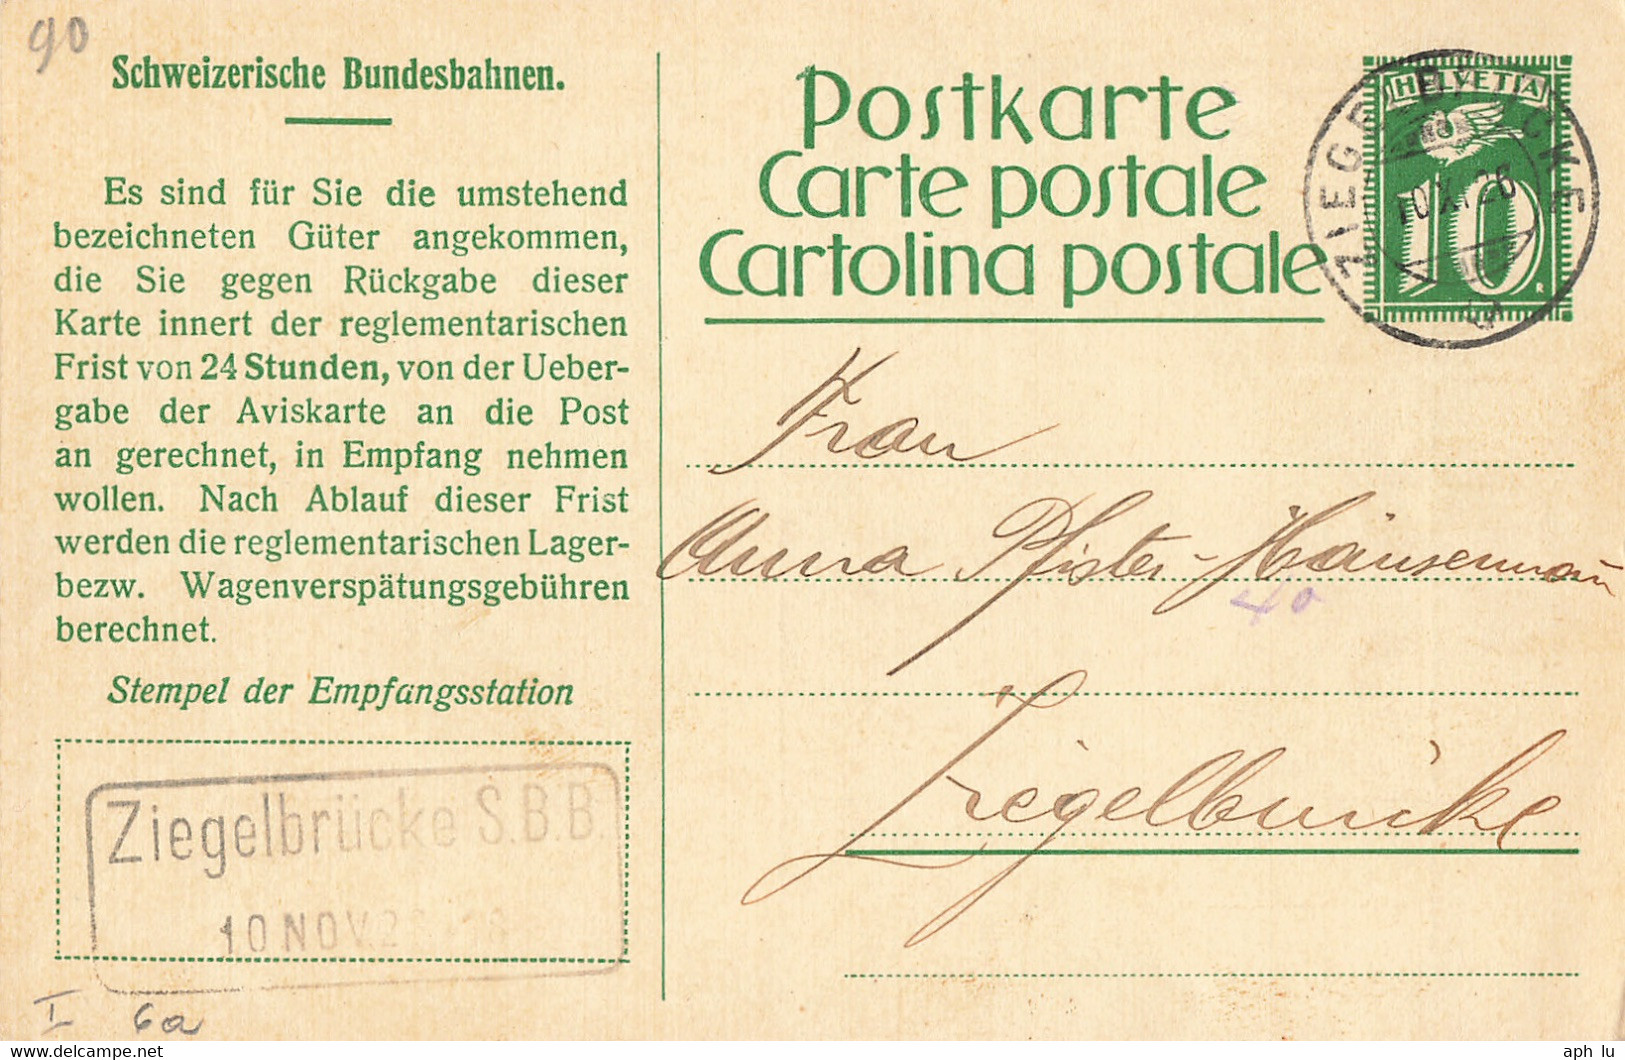 90
Schweizerische Bundesbahnen.
Es sind für Sie die umstehend
bezeichneten Güter angekommen,
die Sie gegen Rückgabe dieser
Karte innert der reglementarischen
Frist von 24 Stunden, von der Ueber-
gabe der Aviskarte an die Post
an gerechnet, in Empfang nehmen
wollen. Nach Ablauf dieser Frist
werden die reglementarischen Lager-
bezw. Wagenverspätungsgebühren
berechnet.
Stempel der Empfangsstation
Ziegelbrücke S.B.B.
10 NOV.
I 6a
Postkarte
Carte postale
Cartolina postale
HELVETIA
10
ZIEGELBRÜCKE
10.X.26
Frau
Anna Pfister-Häusermann
40
Ziegelbrücke
www.delcampe.net
aph_lu